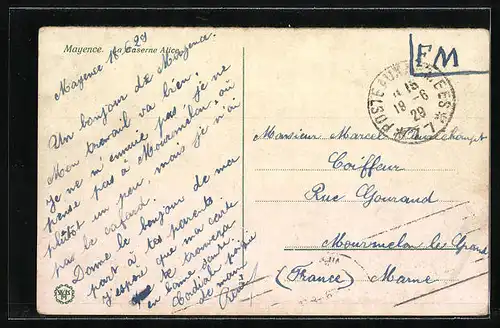 Mayence. La Caserne Alice.
Mayence 18/6/29
Un bonjour de Mayence.
Mon travail va bien,
Je ne m'ennuie pas, je ne
pense pas à Mourmelon, où
plutôt un peu, mais je n'ai
pas le cafard.
Donne le bonjour de ma
part à tes parents
J'espère que ma carte
te trouvera
en bonne santé.
Cordiale poignée
de main
René
FM
POSTE AUX ARMEES
18-6
29
Monsieur Marcel
Coiffeur
Rue Gouraud
Mourmelon le Grand
(France) Marne